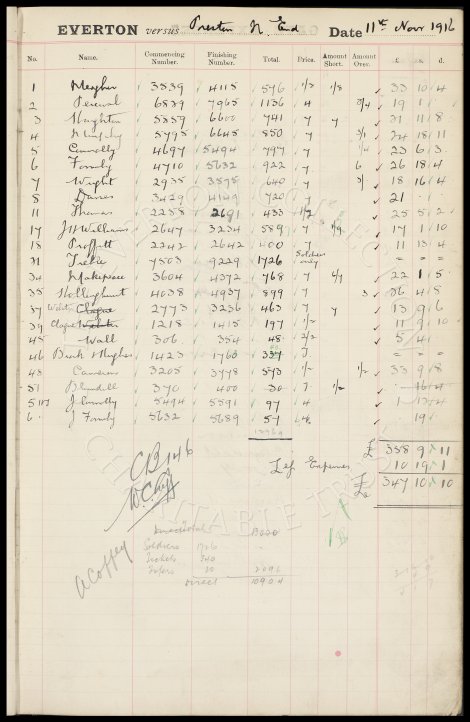 EVERTON versus Preston N. End Date 11th Nov 1916
No. Name. Commencing Number. Finishing Number. Total. Price. Amount Short. Amount Over. £ s. d.
1 Meagher 3539 4115 576 1/2 1/8 33 10 4
2 Percival 6829 7965 1136 4 3/4 19 1
3 Houghton 5859 6600 741 7 7 21 11 8
4 Murphy 5795 6645 850 7 24 18 11
5 Connolly 4697 5494 797 7 23 6 3
6 Formby 4710 5632 922 7 6 26 18 4
7 Wright 2935 3575 640 7 18 16 4
8 Davies 3429 4149 720 7 21
11 Thomas 2258 2691 433 1/2 25 5 2
17 J H Williams 2647 3234 589 7 1/9 17 1 10
18 Proffitt 2242 2642 400 7 11 13 4
31 7503 9229 1726 Soldiers only = = =
34 Makepeace 3604 4372 768 7 4/7 22 1 5
35 Hollinghurst 4038 4937 899 7 3 26 4 8
37 Webster 2773 3236 463 7 7 13 9 6
39 Clague 1218 1415 197 1/2 11 9 10
45 Wall 306 354 48 2/3 5 4
46 Birch & Hughes 1423 1760 337 7 = = =
48 Cameron 3205 3778 573 1/2 1/2 33 9 8
51 Blundell 370 400 30 7 1/2 16 4
5 J Connolly 5494 5591 97 4 1 13 4
6 J Formby 5632 5689 57 4 19
£ 358 9 11
Less Expenses 10 19 1
£ 347 10 10
W. C. Cuff
A Coffey
Soldiers 1726
Tickets 340
2096
Direct 10904